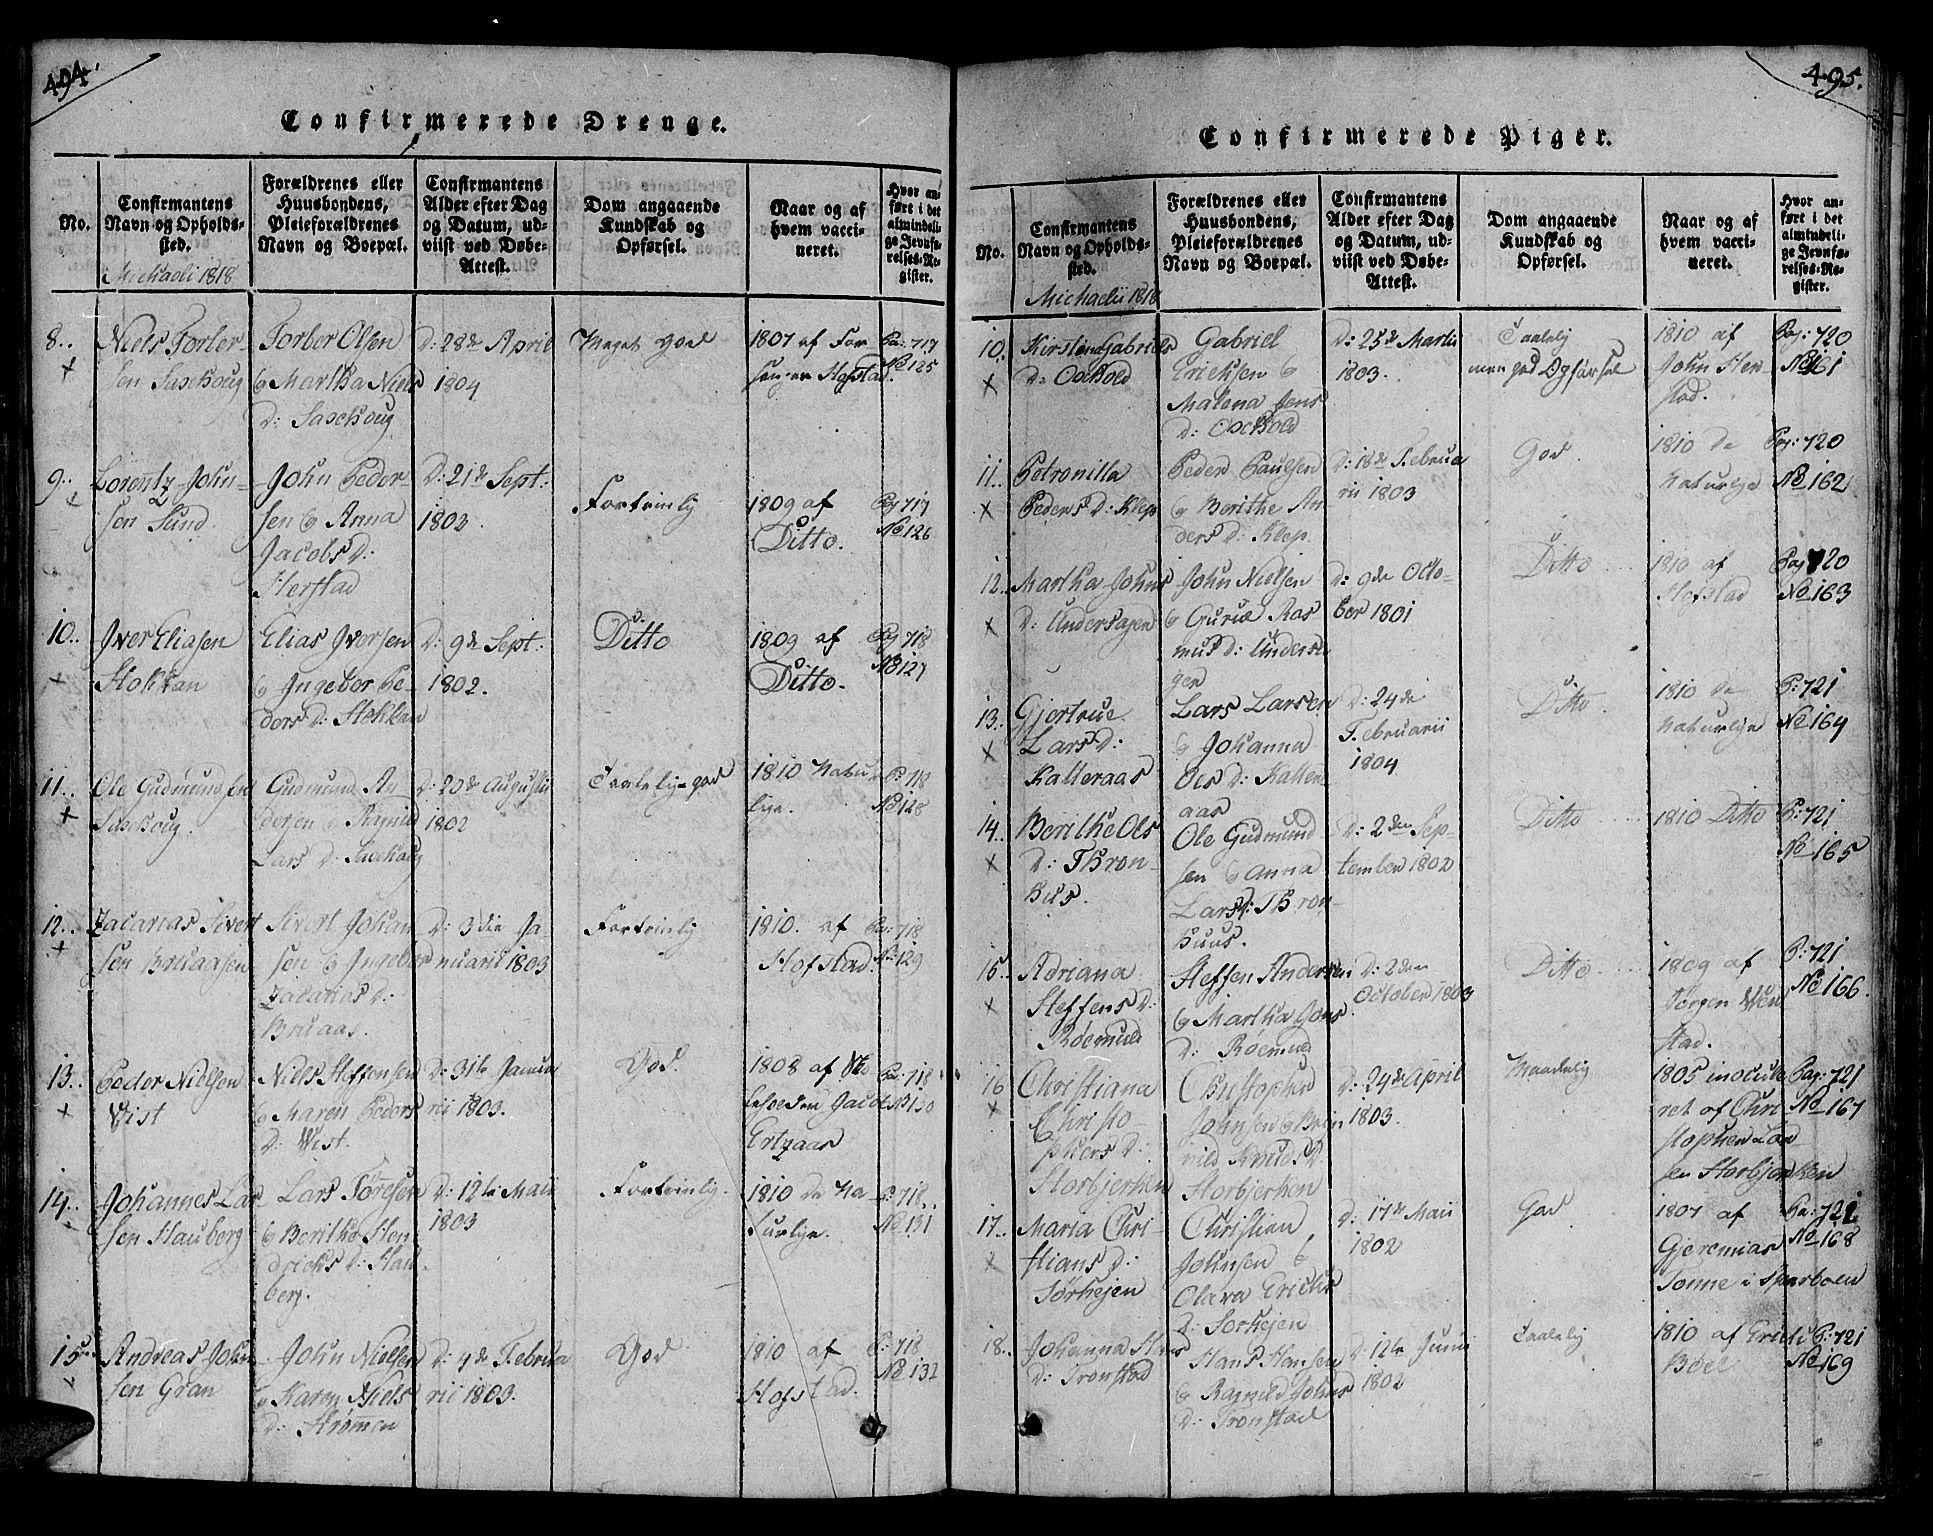 494.
Confirmerede Drenge.
No.
Confirmantens
Navn og Opholds-
sted.
Forældrenes eller
Huusbondens,
Pleieforældrenes
Navn og Boepæl.
Confirmantens
Alder efter Dag
og Datum, ud-
viist ved Døbe-
Attest.
Dom angaaende
Kundskab og
Opførsel.
Naar og af
hvem vacci-
neret.
Hvor an-
ført i det
almindeli-
ge Jevnfø-
relses-Re-
gister.
Michaeli 1818
8..
Niels Torber-
sen Saxhoug
Torber Olsen
& Martha Niels
D: Saxhoug
D: 28de April
1804
Meget god
1807 af For
Hofstad
Pa: 717
No 125
9..
Lorentz John-
sen Sund.
John Peder-
sen & Anna
Jacobs D:
Herstad
D: 21de Sept:
1803.
Fortrinlig
1809 af
Ditto.
Pag 717
No 126
10..
Iver Eliasen
Stokkan
Elias Iversen
& Ingebor Pe-
ders D: Stokkan
D: 9de Sept:
1802.
Ditto
1809 af
Ditto.
Pag 718
No 127
11..
Ole Gudmundsen
Saxhoug.
Gudmund An
dersen & Ragnild
Lars D: Saxhoug
D: 20de Augustii
1802
Taalelig god
1810 Natur
lige.
P: 718
No 128
12..
Zacarias Sivert
sen Bruaasen
Sivert Johan
sen & Ingebor
Zacarias D:
Bruaas.
D: 3die Ja-
nuarii 1803
Fortrinlig
1810. af
Hofstad.
Pa: 718
No 129
13..
Peder Nielsen
Vist
Niels Steffensen
& Maren Peders
D: Wist.
D: 31te Janua
rii 1803.
God.
1808 af
Jacob
Ertzaas
Pa: 718
No 130
14..
Johannes Lar
sen Hauberg
Lars Tøresen
& Berithe Hen
dricks D: Hau
berg.
D: 12te Maii
1803
Fortrinlig.
1810 De Na
turlige.
P: 718..
No 131
15..
Andreas John
sen Gran
John Nielsen
& Karen Niels
D: Strømmen
D: 4de Februa
rii 1803.
God
1810 af
Hofstad.
P: 718
No 132
495.
Confirmerede Piger.
No.
Confirmantens
Navn og Opholds-
sted.
Forældrenes eller
Huusbondens,
Pleieforældrenes
Navn og Boepæl.
Confirmantens
Alder efter Dag
og Datum, ud-
viist ved Døbe-
Attest.
Dom angaaende
Kundskab og
Opførsel.
Naar og af
hvem vacci-
neret.
Hvor an-
ført i det
almindeli-
ge Jevnfø-
relses-Re-
gister.
Michaelii 1818
10.
Kirstine Gabriels
D: Oxhold
Gabriel
Ericksen &
Malena Jens
D: Oxhold
D: 25de Martii
1803.
Taalelig
men god Opførsel
1810 af
John Her-
stad.
Pag: 720
No 161
11..
Petronilla
Peders D: Klep
Peder Paulsen
& Berithe An
ders D: Klep.
D: 18de Februa
rii 1803
God
1810 de
Naturlige
Pag: 720
No 162
12..
Martha Johns
D: Undersagen
John Nielsen
& Guruæ Ras
mus D: Undersa
gen
D: 9de Octo-
ber 1801
Ditto
1810 af
Hofstad
Pag 720
No 163
13..
Gjertrue
Lars D:
Kalteraas
Lars Larsen
& Johanna
Ols D: Kalter
aas
D: 24de
Februarii
1804
Ditto
1810 de
Naturlige
P: 721
No 164
14..
Berithe Ols
D: Thron-
hus.
Ole Gudmund-
sen & Anna
Lars D: Thron-
huus.
D: 2den Sep-
tember 1802
Ditto
1810 Ditto
P: 721
No 165
15.
Adriana
Steffens D:
Røemuld
Steffen Andersen
& Martha Jons
D: Roemuld
D: 2den
October 1803
Ditto
1809 af
Jørgen Wen
stad.
P: 721
No 166.
16
Christiana
Christo
phers D:
Storbjerken
Christopher
Johnsen & Bren
nild Knuds D
Storbjerken
D: 24de April
1803.
Maadelig
1805 inocule
ret af Chri
stopher
Storbjerken
Pag: 721
No 167
17..
Maria Chri-
stians D:
Sørhejen
Christian
Johnsen &
Olava Erichs
D: Sorhejen
D: 17de Maii
1802
God
1807 af
Gjeremias
Tonne i Sparboen
Pa: 721
No 168
18..
Johanna Hans
D: Tronstad
Hans Hansen
& Ragnild Johns
D: Tronstad
D: 12te Junii
1802
Taalelig
1810 af Erich
Boel
P: 721
No 169